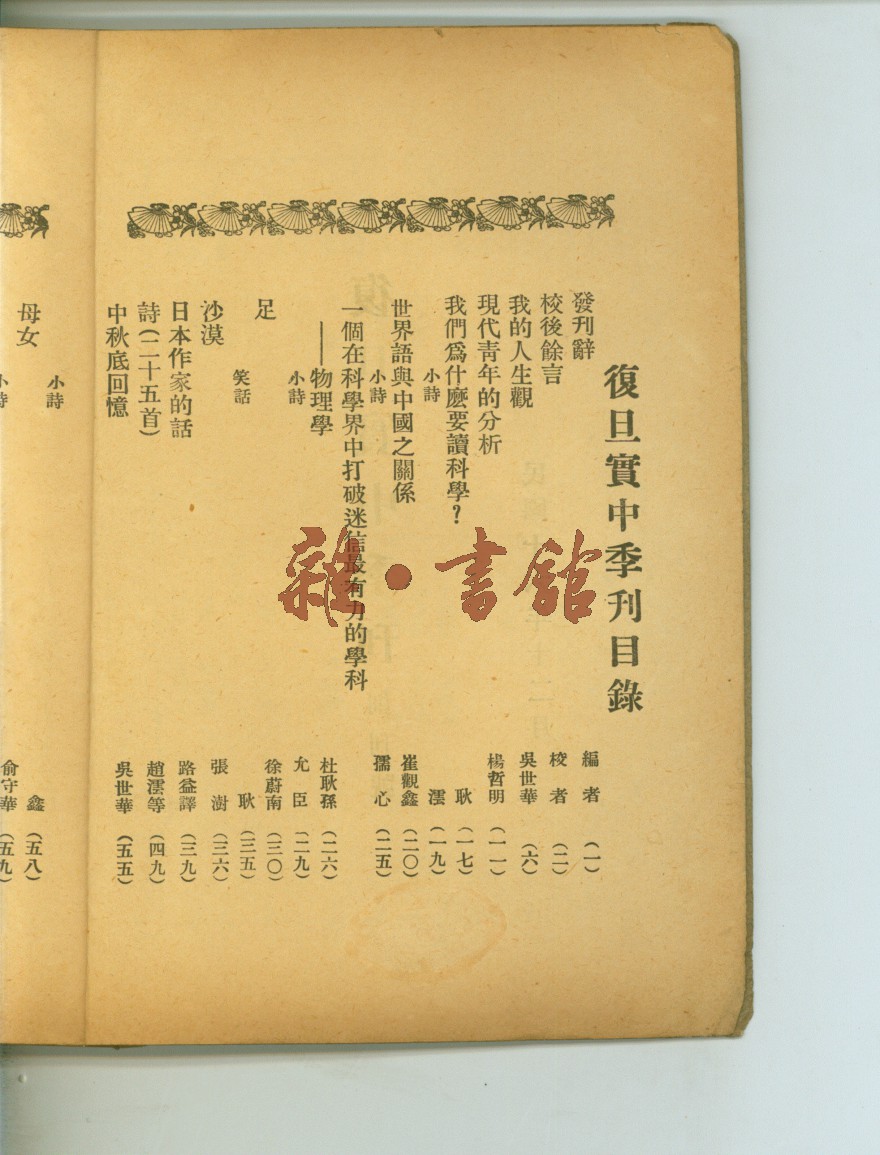 復旦實中季刊目錄
發刊辭 編者 (一)
校後餘言 校者 (二)
我的人生觀 吳世華 (六)
現代青年的分析 楊哲明 (一一)
我們爲什麽要讀科學？ 耿 (一七)
小詩 澐 (一九)
世界語與中國之關係 崔觀鑫 (二〇)
小詩 孺心 (二五)
一個在科學界中打破迷信最有力的學科
——物理學 杜耿孫 (二六)
小詩 尤臣 (二九)
足 徐蔚南 (三〇)
笑話 耿 (三五)
沙漠 張澍 (三六)
日本作家的話 路益譯 (三九)
詩(二十五首) 趙澐等 (四九)
中秋底回憶 吳世華 (五五)
小詩 鑫 (五八)
母女 俞守華 (五九)
小詩
雜·書館